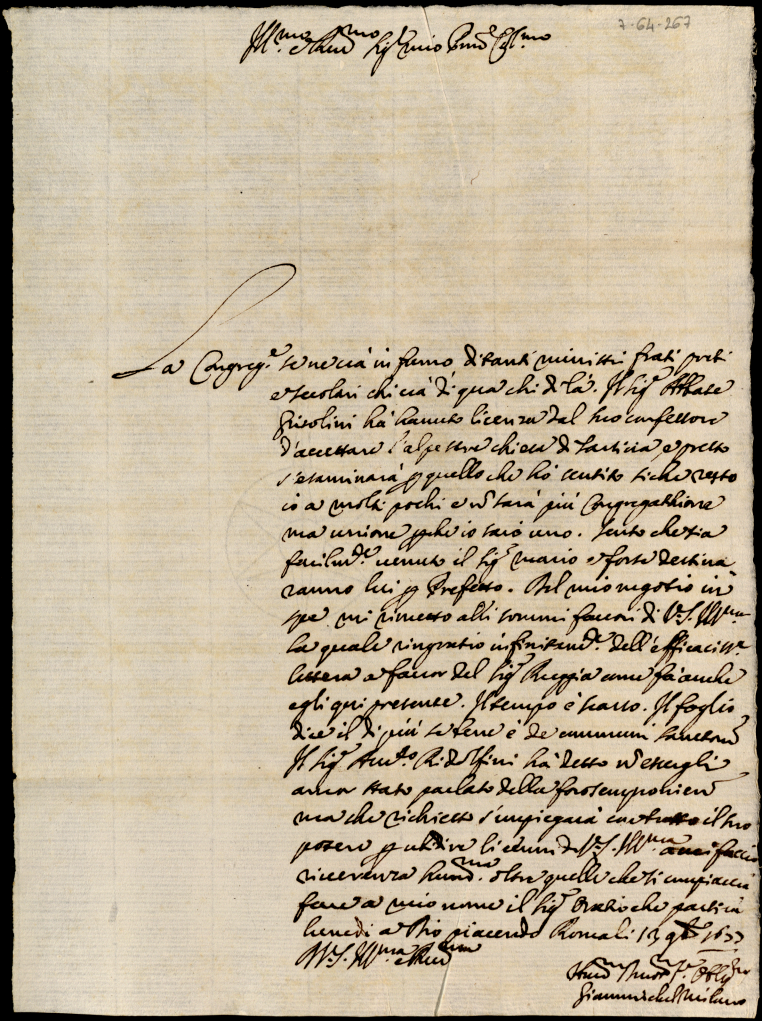 7-64-267
Ill.mo et Rev.mo Sig.r mio Pron Col.mo
La Congreg.e se ne và in fumo di tanti ministri frati preti
e secolari chi và di qua chi di là. Il Sig.r Abbate
Grisolini hà havuto licenza dal suo confessore
d'accettare l'alpestre chiesa di e presto
s'esaminarà p quello che hò sentito si che resto
io a molti pochi e nõ sarà più Congregathione
ma unione pche io sarò uno. Sento che sia
facilm.te venuto il Sig.r Mario e forse destina
ranno lui p Prefetto. Del mio negotio in
spe mi rimetto alli sommi favori di V.S. Ill.ma
la quale ringratio infinitam.te dell'efficaciss.a
lettera a favor del Sig.r Ruggia come fà anche
egli qui presente. Il tempo è scarso. Il foglio
dice il di più se bene è de communi
Il Sig.r Ridolfini hà detto nõ essergli
ancor stato parlato della
ma che richiesto s'impiegarà con tutto il suo
potere p ubidire li cenni di V.S. Ill.ma a cui faccio
riverenza hum.ma oltre quelle che si compiacerà
fare a mio nome il Sig.r Oratio che partirà
lunedi a Dio piacendo Roma li 13 9bre 1633
D V.S. Ill.ma et Rev.ma
Hum Ser.e Oblig
Giannichel Milano